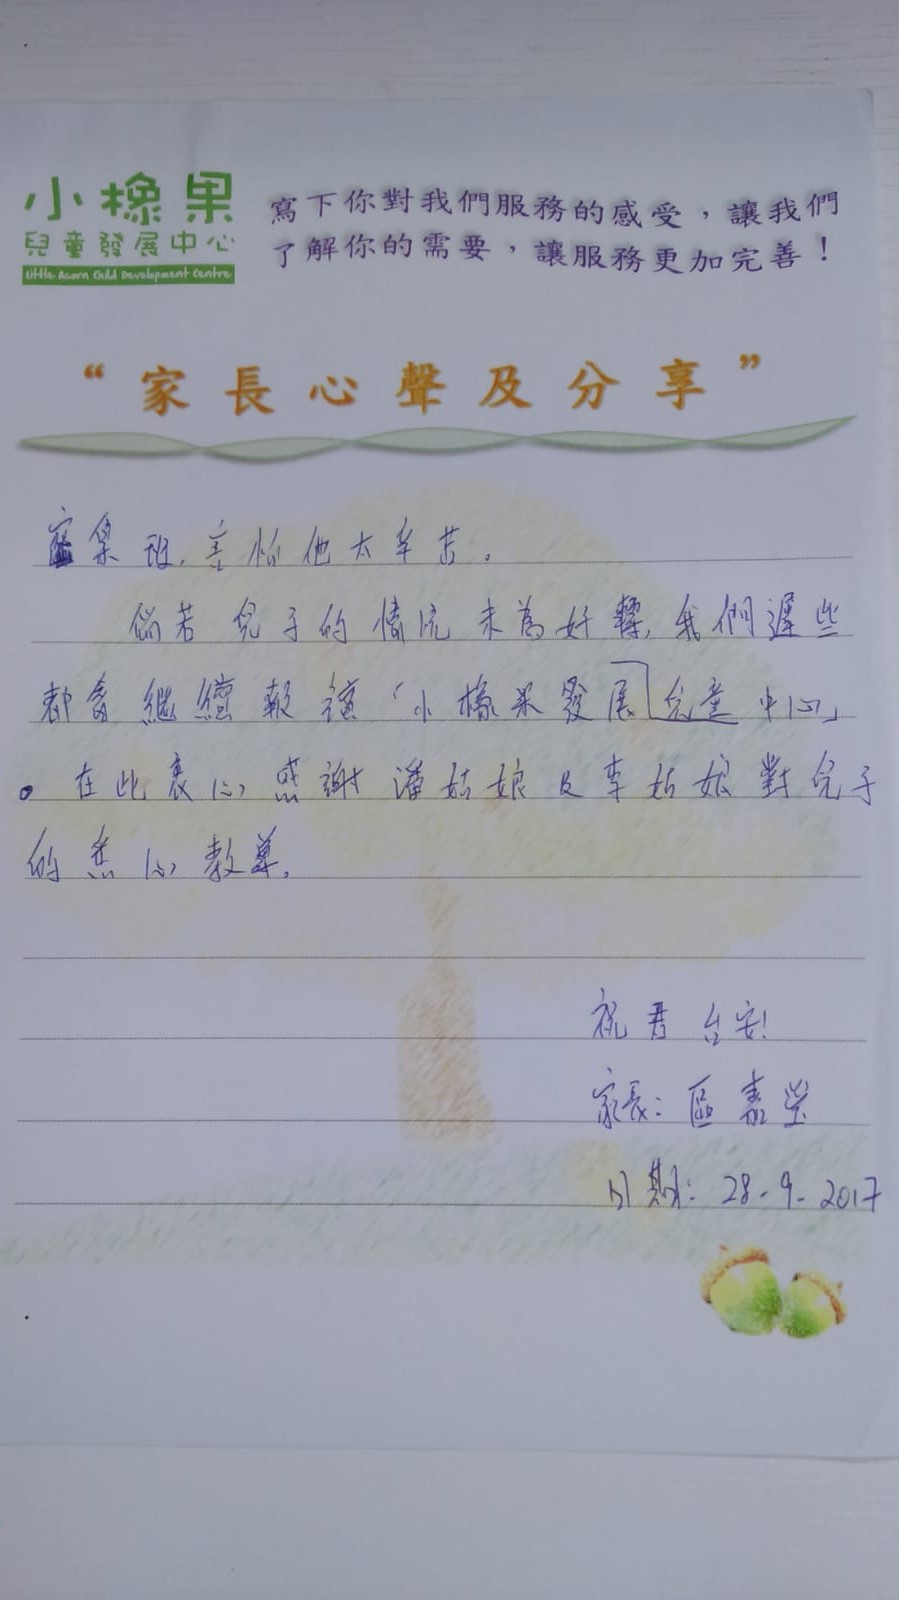 小橡果
兒童發展中心
Little Acorn Child Development Centre
寫下你對我們服務的感受，讓我們
了解你的需要，讓服務更加完善！
“家長心聲及分享”
班，害怕他太辛苦。
倘若兒子的情況未為好轉，我們遲些
都會繼續報讀「小橡果發展兒童中心」
。在此衷心感謝潘姑娘及李姑娘對兒子
的悉心教導。
祝君台安!
家長：區嘉瑩
日期：28-9-2017